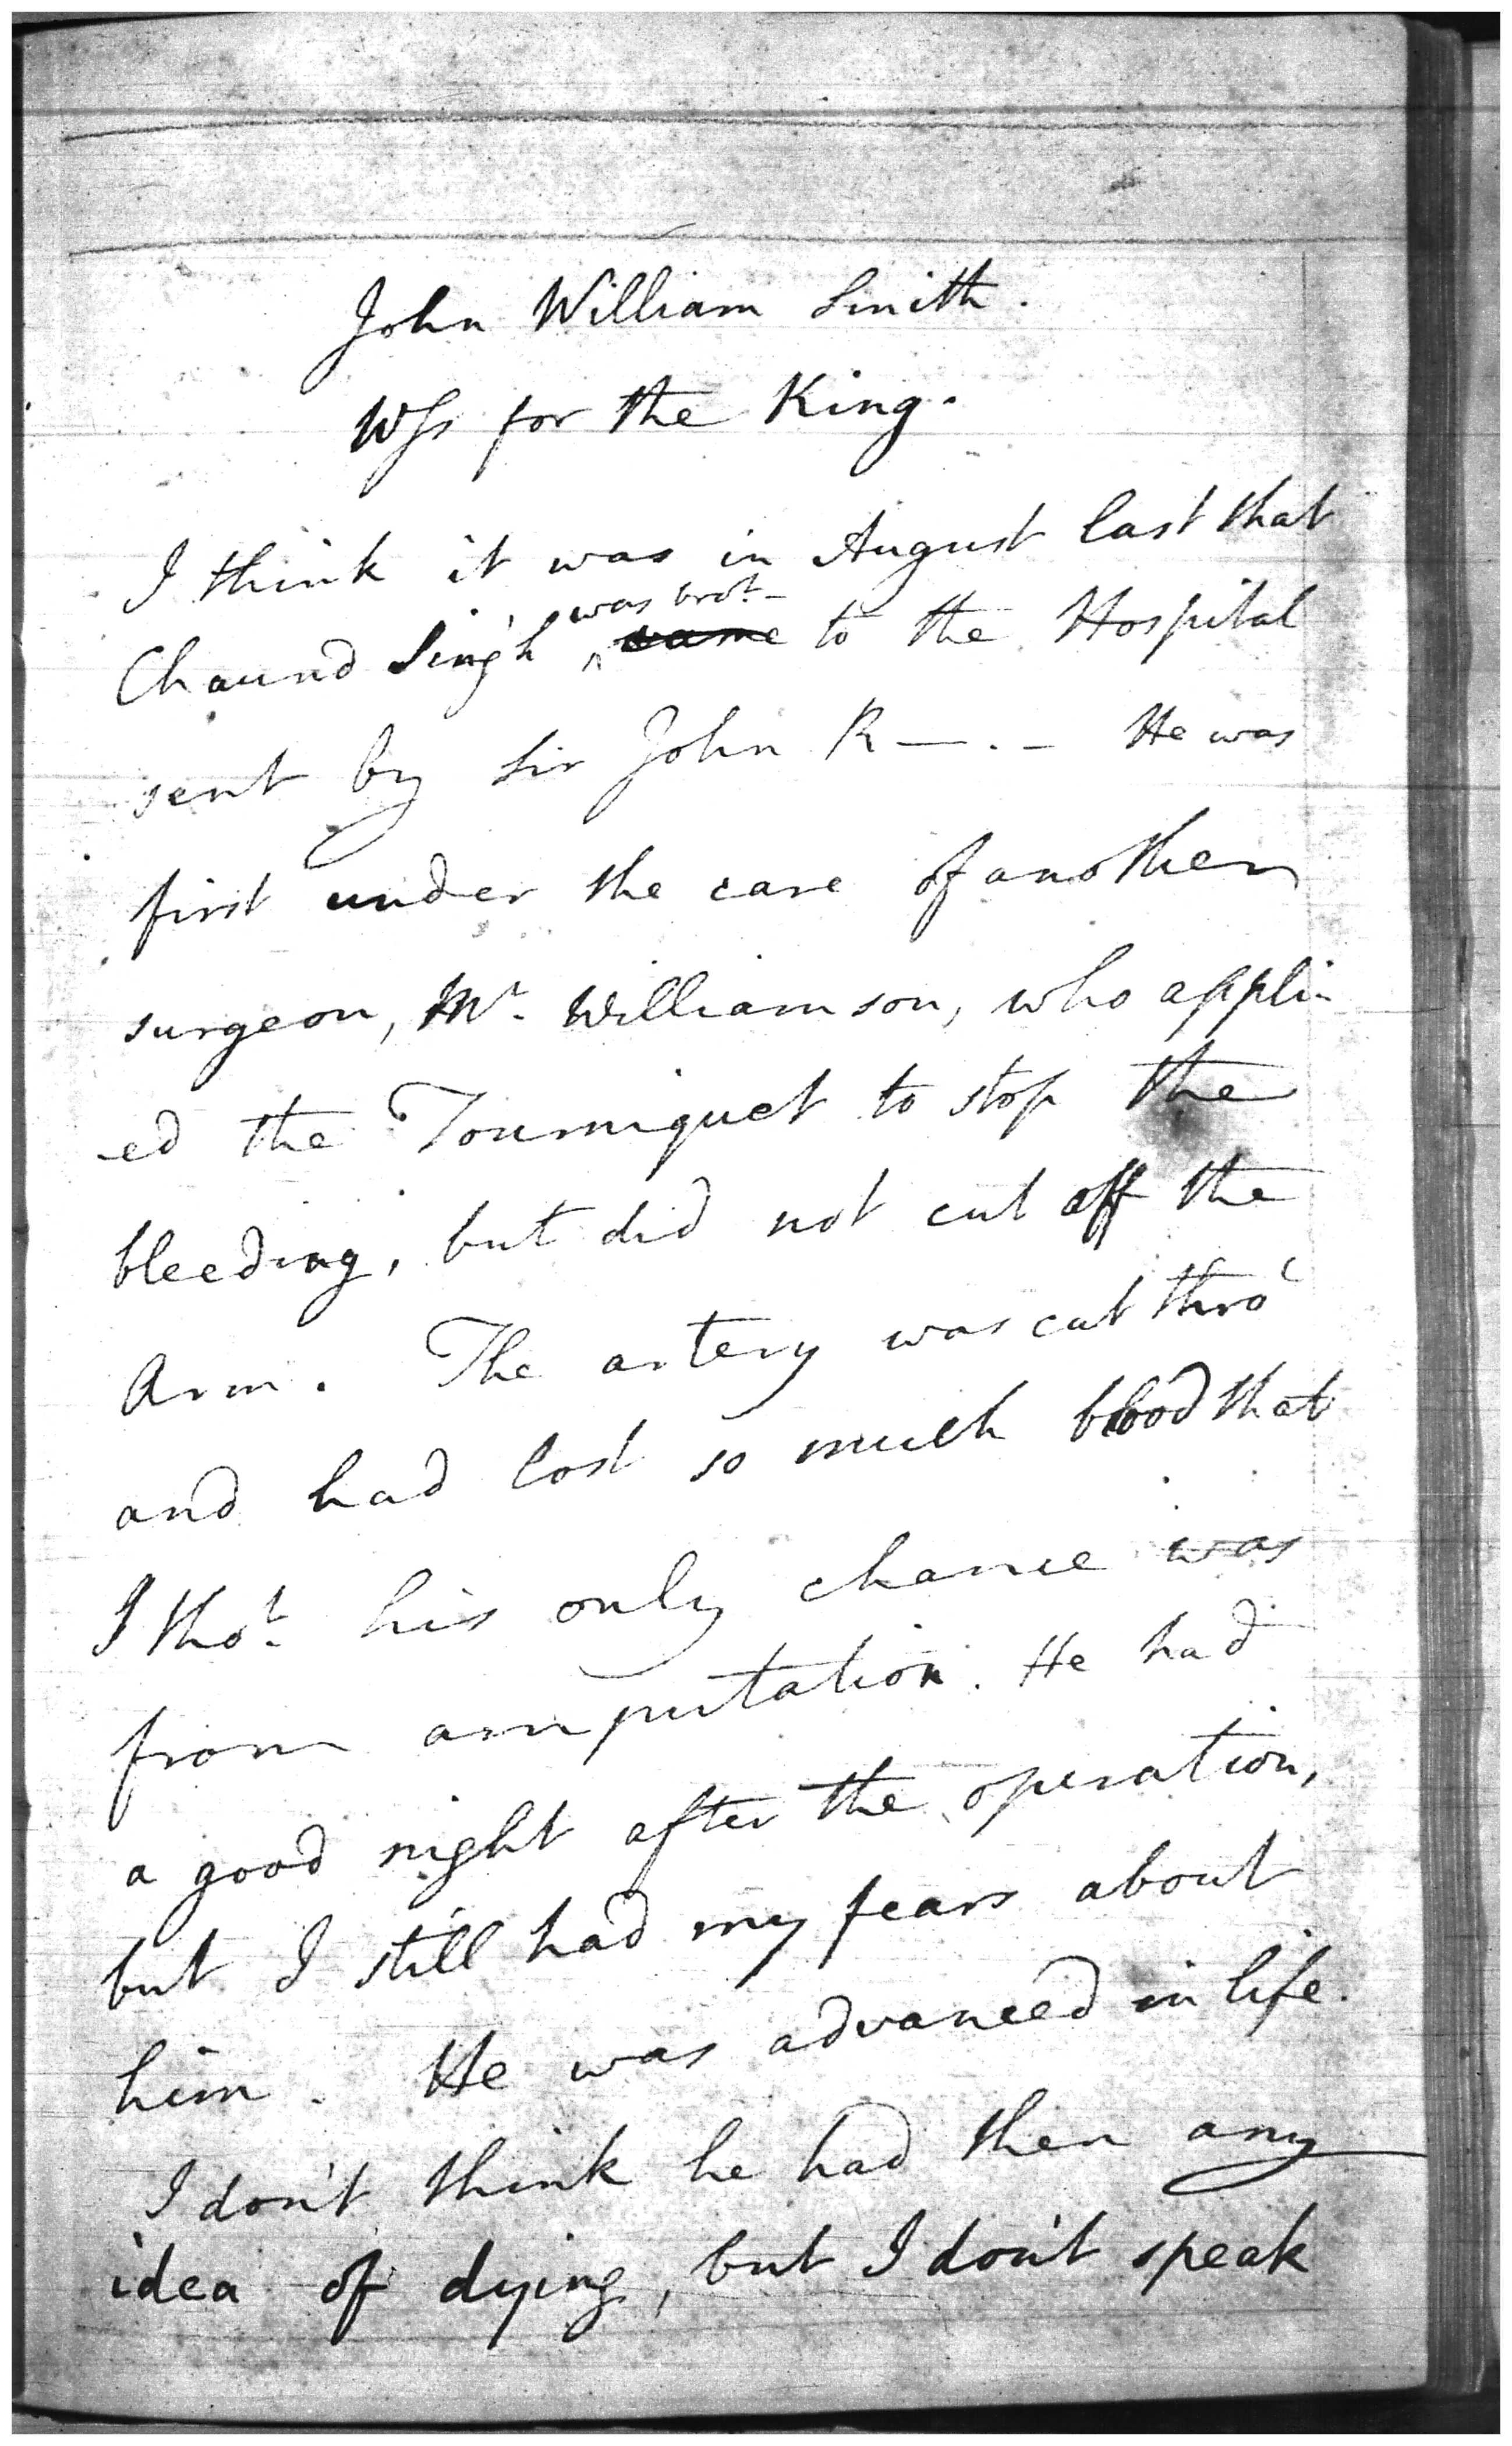 John William Smith.
Wſs for the King.
I think it was in August last that
was brot.
Chaund Singh ^ came to the Hospital
sent by Sir John R—.— He was
first under the care of another
surgeon, Mr. Williamson, who appli-
-ed the Tourniquet to stop the
bleeding, but did not cut off the
Arm. The artery was cut thro'
and had lost so much blood that
I thot. his only chance was
from amputation. He had
a good night after the operation,
but I still had my fears about
him. He was advanced in life.
I don't think he had then any
idea of dying, but I don't speak